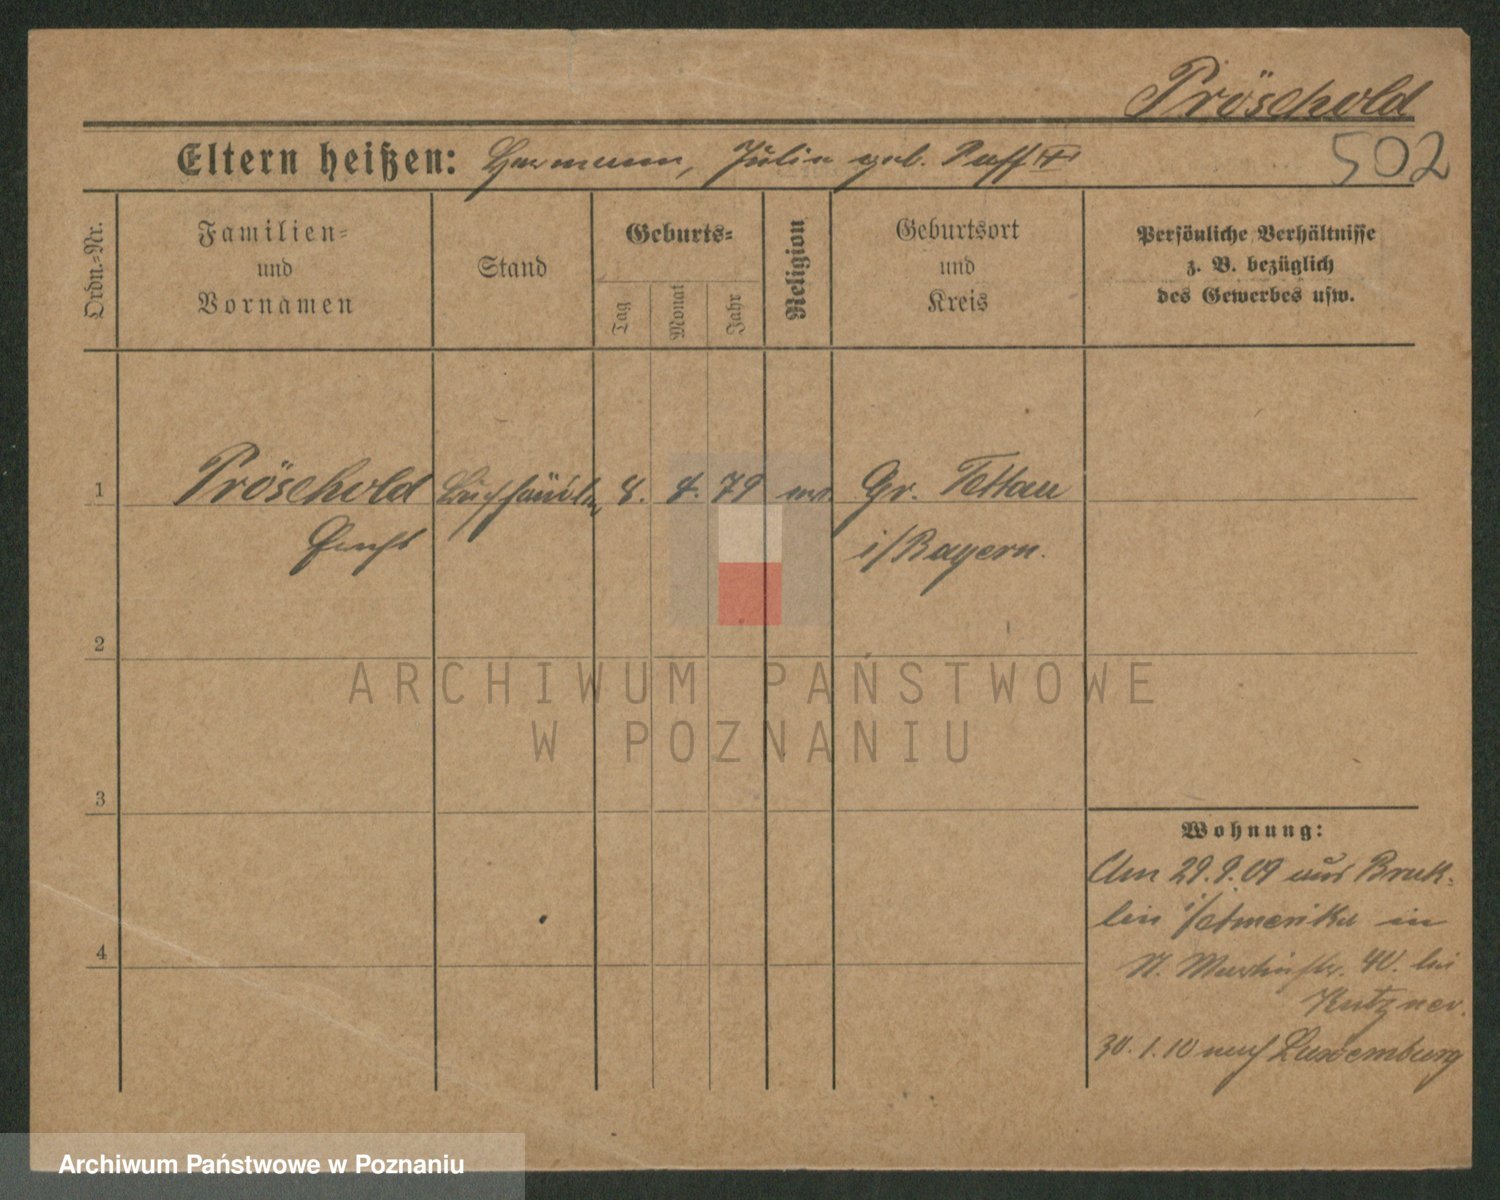 Pröschold
Eltern heißen: Hermann, Julie geb. Puff ++
502
Ordn.-Nr.
Familien-
und
Vornamen
Stand
Geburts-
Tag
Monat
Jahr
Religion
Geburtsort
und
Kreis
Persönliche Verhältnisse
z. B. bezüglich
des Gewerbes usw.
1
Pröschold Buchhändler 8. 4. 79 ev. Gr. Tettau
i/Bayern.
2
ARCHIWUM PAŃSTWOWE
W POZNANIU
3
Wohnung:
Am 29.9.09 aus Bruk-
lin i/Amerika in
St. Martinstr. 40. bei
Kutzner.
4
30.1.10 nach Luxemburg
Archiwum Państwowe w Poznaniu